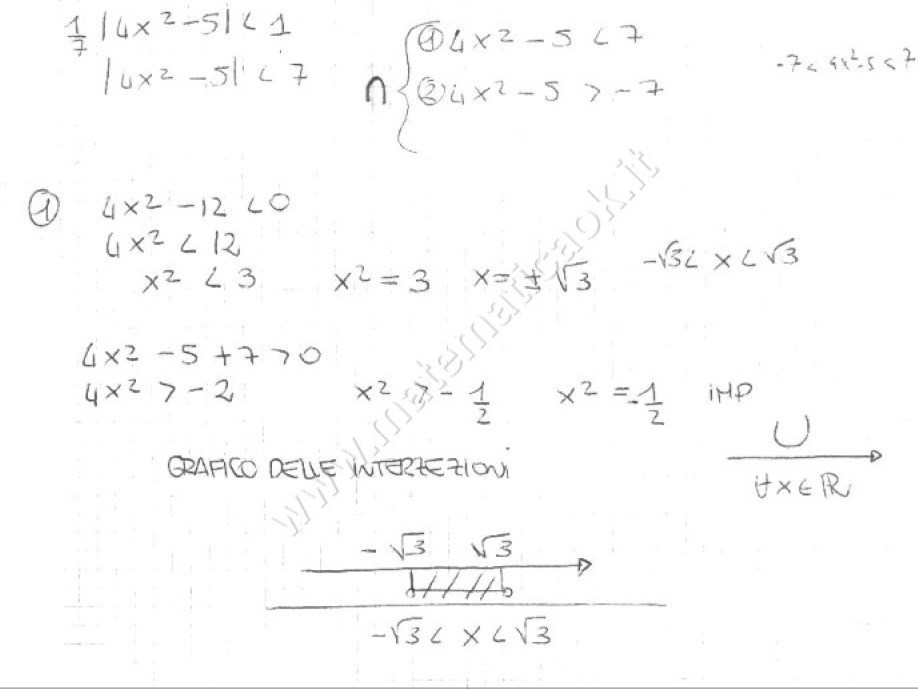 1/7 |4x² -5| < 1
|4x² -5| < 7
∩ { ① 4x² - 5 < 7
② 4x² - 5 > -7
-7 < 4x²-5 < 7
① 4x² -12 < 0
4x² < 12
x² < 3 x² = 3 x = ± √3 -√3 < x < √3
4x² - 5 + 7 > 0
4x² > -2 x² > - 1/2 x² = - 1/2 iMP
∀x∈ℝ
GRAFICO DELLE INTERZEZIONI
-√3 √3
-√3 < x < √3
www.matematicaok.it